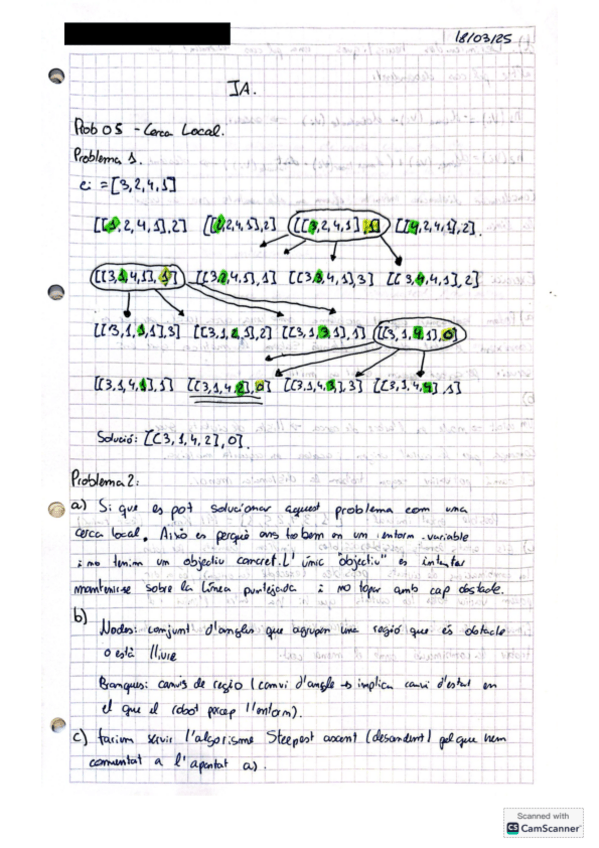 18/03/25
IA.
Prob 05 - Cerca Local.
Problema 1.
ei = [3,2,4,1]
[[1,2,4,1],2] [[2,2,4,1],2] [[3,2,4,1],1] [[4,2,4,1],2].
[[3,1,4,1],1] [[3,2,4,1],1] [[3,3,4,1],3] [[3,4,4,1],2]
[[3,1,1,1],3] [[3,1,2,1],2] [[3,1,3,1],1] [[3,1,4,1],0]
[[3,1,4,1],1] [[3,1,4,2],0] [[3,1,4,3],3] [[3,1,4,4],1]
Solució: [[3,1,4,2],0].
Problema 2:
a) Si que es pot solucionar aquest problema com una
cerca local. Això es perquè ens trobem en un entorn variable
i no tenim un objectiu concret. L'únic "objectiu" es intentar
mantenir-se sobre la línea puntejada i no topar amb cap obstacle.
b)
Nodes: conjunt d'angles que agrupen una regió que és obstacle
o està lliure
Branques: canvis de regio (canvi d'angle → implica canvi d'estat en
el que el robot percep l'entorn).
c) fariem servir l'algorisme Steepest ascent (descendent) pel que hem
comentat a l'apartat a).
Scanned with
CS CamScanner